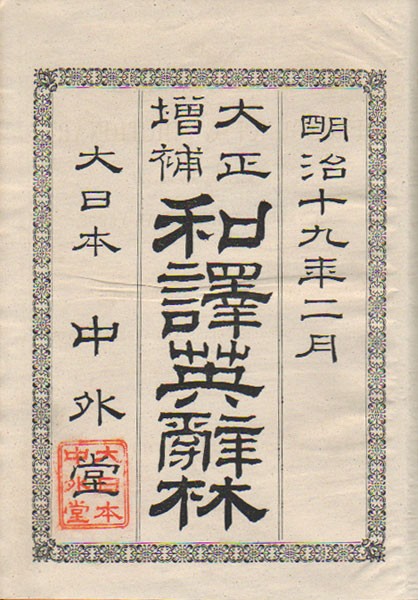 明治十九年二月
大正
増補
和譯英辭林
大日本 中外堂
大日本
中外堂